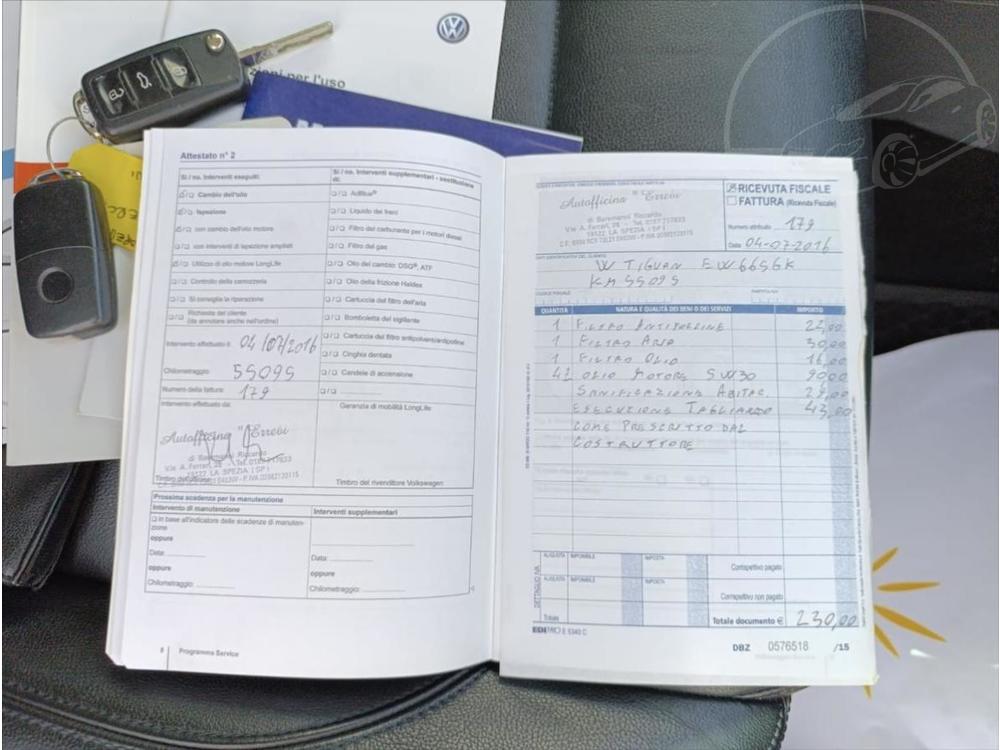 ni per l'uso
Attestato n° 2
Sì / no. Interventi eseguiti:
Cambio dell'olio
Ispezione
con cambio dell'olio motore
con interventi di ispezione ampliati
Utilizzo di olio motore LongLife
Controllo della carrozzeria
Si consiglia la riparazione
Richiesta del cliente
(da annotare anche nell'ordine)
Intervento effettuato il: 04/07/2016
Chilometraggio: 55095
Numero della fattura: 179
Intervento effettuato da:
Autofficina "Errebi
di Baromansi Riccardo
V.le A. Ferrari, 28 - Tel.
19122 LA SPEZIA (SP)
Sì / no. Interventi supplementari - sostituzione
di:
AdBlue®
Liquido dei freni
Filtro del carburante per i motori diesel
Filtro del gas
Olio del cambio: DSG®, ATF
Olio della frizione Haldex
Cartuccia del filtro dell'aria
Bomboletta del sigillante
Cartuccia del filtro antipolvere/antipolline
Cinghia dentata
Candele di accensione
Garanzia di mobilità LongLife
Timbro del rivenditore Volkswagen
Prossima scadenza per la manutenzione
Intervento di manutenzione
In base all'indicatore delle scadenze di manuten-
zione
oppure
Data:
oppure
Chilometraggio:
Interventi supplementari
Data:
oppure
Chilometraggio:
8 Programma Service
Autofficina "Errebi
V.le A. Ferrari, 28 - Tel.
19122 LA SPEZIA
RICEVUTA FISCALE
FATTURA (Ricevuta Fiscale)
Numero attribuito 179
Data 04-07-2016
W TIGUAN EW665GK
KM 55095
QUANTITÀ NATURA E QUALITÀ DEI BENI O DEI SERVIZI IMPORTO
1 FILTRO ANTIPOLLINE 22,00
1 FILTRO ARIA 30,00
1 FILTRO OLIO 16,00
OLIO MOTORE 5W30 90,00
SANIFICAZIONE ABITAC.
ESECUZIONE TAGLIANDO 43,00
COME PRESCRITTO DAL
COSTRUTTORE
DETTAGLIO IVA
ALIQUOTA IMPONIBILE IMPOSTA
Corrispettivo pagato
ALIQUOTA IMPONIBILE IMPOSTA
Corrispettivo non pagato
Totale
Totale documento € 230,00
EDIPRO E 5340 C
DBZ 0576518 /15